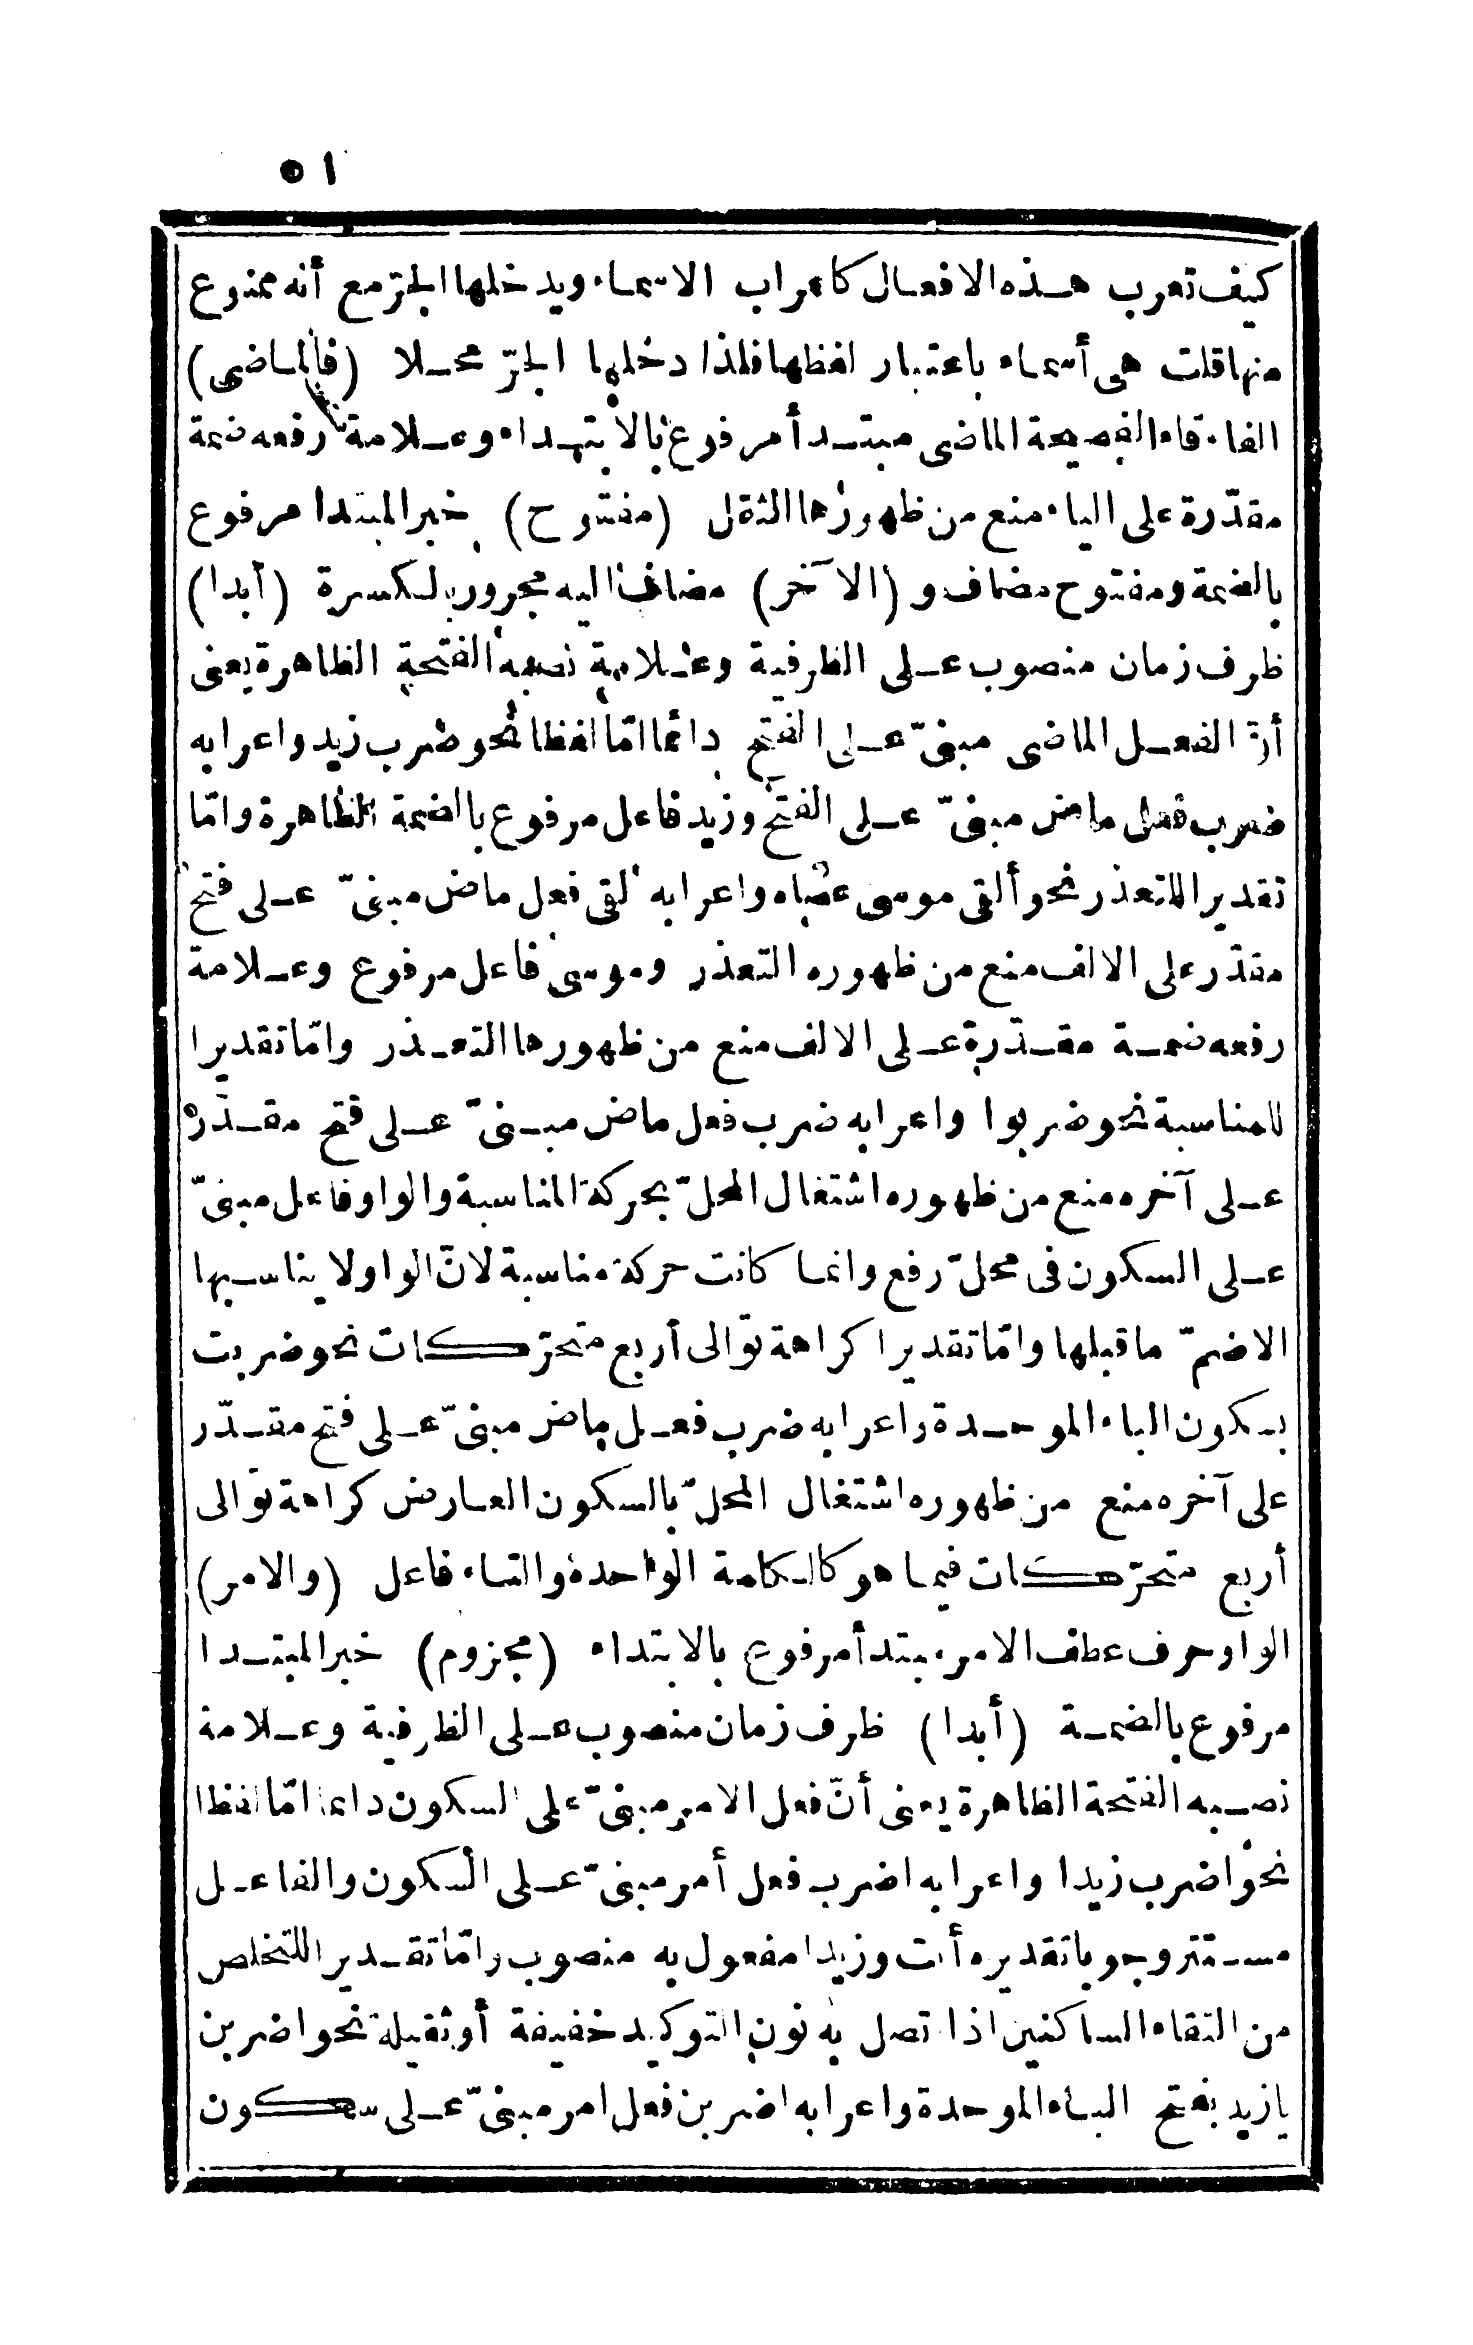 ٥١
كيف تعرب هذه الافعال كاعراب الاسماء ويدخلها الجرّ مع أنه ممنوع
منها قلت هى أسماء باعتبار لفظها فلذا دخلها الجرّ محلا (فالماضى)
الفاء فاء الفصيحة الماضى مبتدأ مرفوع بالابتداء وعلامة رفعه ضمة
مقدّرة على الياء منع من ظهورها الثقل (مفتوح) خبر المبتدا مرفوع
بالضمة ومفتوح مضاف و (الآخر) مضاف اليه مجرور بالكسرة (أبدا)
ظرف زمان منصوب على الظرفية وعلامة نصبه الفتحة الظاهرة يعنى
أنّ الفعل الماضى مبنىّ على الفتح دائما امّا لفظا نحو ضرب زيد واعرابه
ضرب فعل ماض مبنىّ على الفتح وزيد فاعل مرفوع بالضمة الظاهرة وامّا
تقديرا للتعذر نحو ألقى موسى عصاه واعرابه ألقى فعل ماض مبنىّ على فتح
مقدّر على الالف منع من ظهوره التعذر وموسى فاعل مرفوع وعلامة
رفعه ضمة مقدّرة على الالف منع من ظهورها التعذر وامّا تقديرا
للمناسبة نحو ضربوا واعرابه ضرب فعل ماض مبنىّ على فتح مقدّر
على آخره منع من ظهوره اشتغال المحلّ بحركة المناسبة والواو فاعل مبنىّ
على السكون فى محلّ رفع وانما كانت حركة مناسبة لانّ الواو لا يناسبها
الاضمّ ما قبلها وامّا تقديرا كراهة توالى أربع متحرّكات نحو ضربت
بسكون الباء الموحدة واعرابه ضرب فعل ماض مبنىّ على فتح مقدّر
على آخره منع من ظهوره اشتغال المحلّ بالسكون العارض كراهة توالى
أربع متحرّكات فيما هو كالكلمة الواحدة والتاء فاعل (والامر)
الواو حرف عطف الامر مبتدأ مرفوع بالابتداء (مجزوم) خبر المبتدا
مرفوع بالضمة (أبدا) ظرف زمان منصوب على الظرفية وعلامة
نصبه الفتحة الظاهرة يعنى أنّ فعل الامر مبنىّ على السكون دائما امّا لفظا
نحو اضرب زيدا واعرابه اضرب فعل أمر مبنىّ على السكون والفاعل
مستتر وجوبا تقديره أنت وزيدا مفعول به منصوب وامّا تقديرا للتخلص
من التقاء الساكنين اذا تصل به نون التوكيد خفيفة أو ثقيلة نحو اضربن
يا زيد بفتح الباء الموحدة واعرابه اضربن فعل امر مبنىّ على سكون